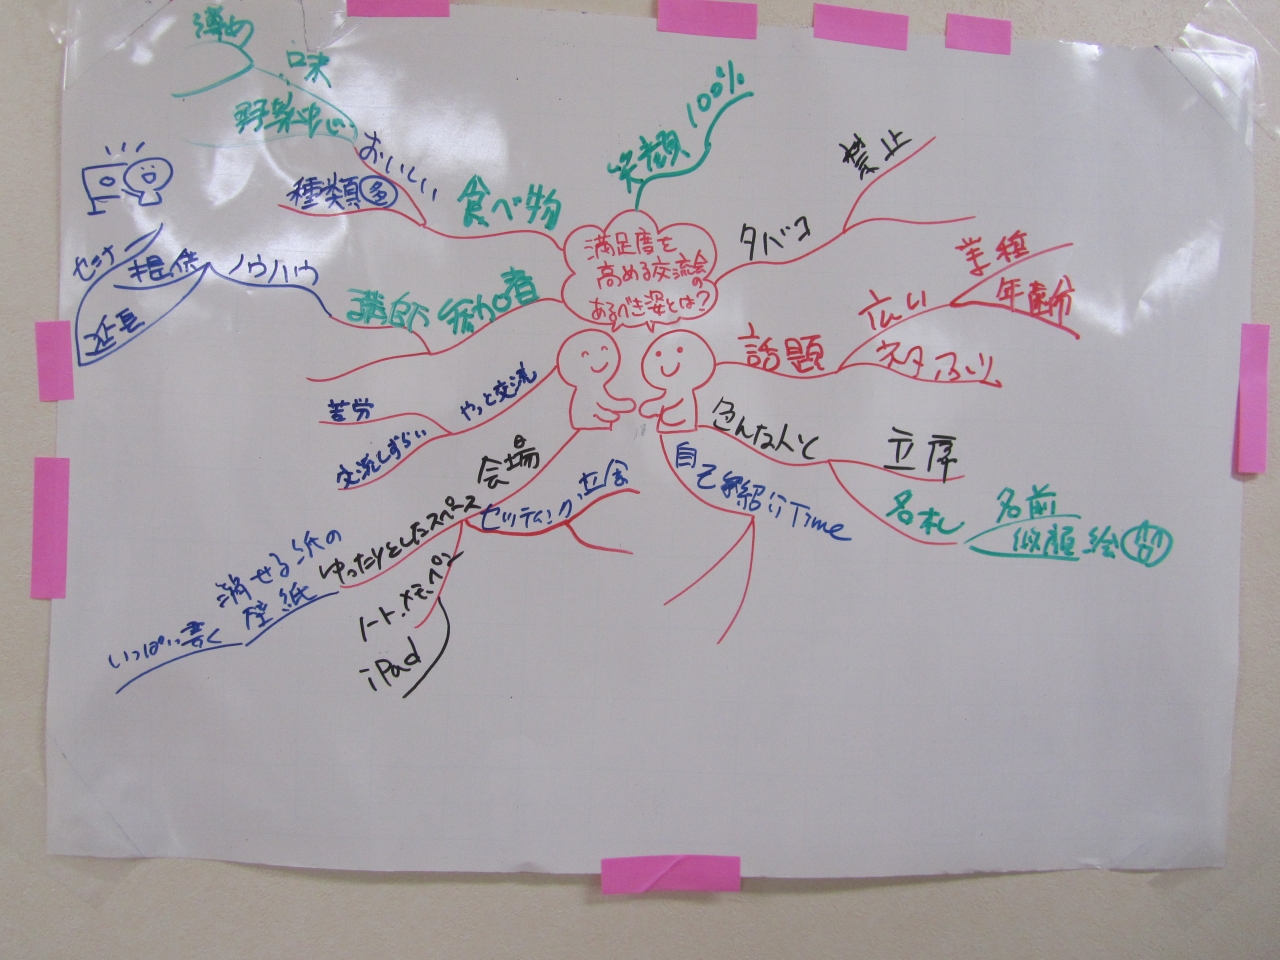 満足度を
高める交流会の
あるべき姿とは?
笑顔 100%
タバコ
禁止
話題
広い
業種
年齢
ネタ
色んな人と
立席
名札
名前
似顔絵
自己紹介Time
会場
セッティング 立会
ゆったりとしたスペース
消せる紙の
壁紙
いっぱい書く
ノート、メモ、ペン
iPad
やっと交流
苦労
交流しずらい
講師 参加者
ノウハウ
提供
セミナ
延長
食べ物
おいしい
種類 多
味
薄め
野菜中心